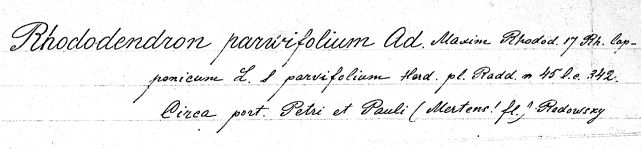 Rhododendron parvifolium Ad. Maxim Rhodod. 17 Rh. lap-
ponicum L. S parvifolium Herd. pl. Radd. n 45 l.c. 342.
Circa port. Petri et Pauli (Mertens! fl.,) Redowsky